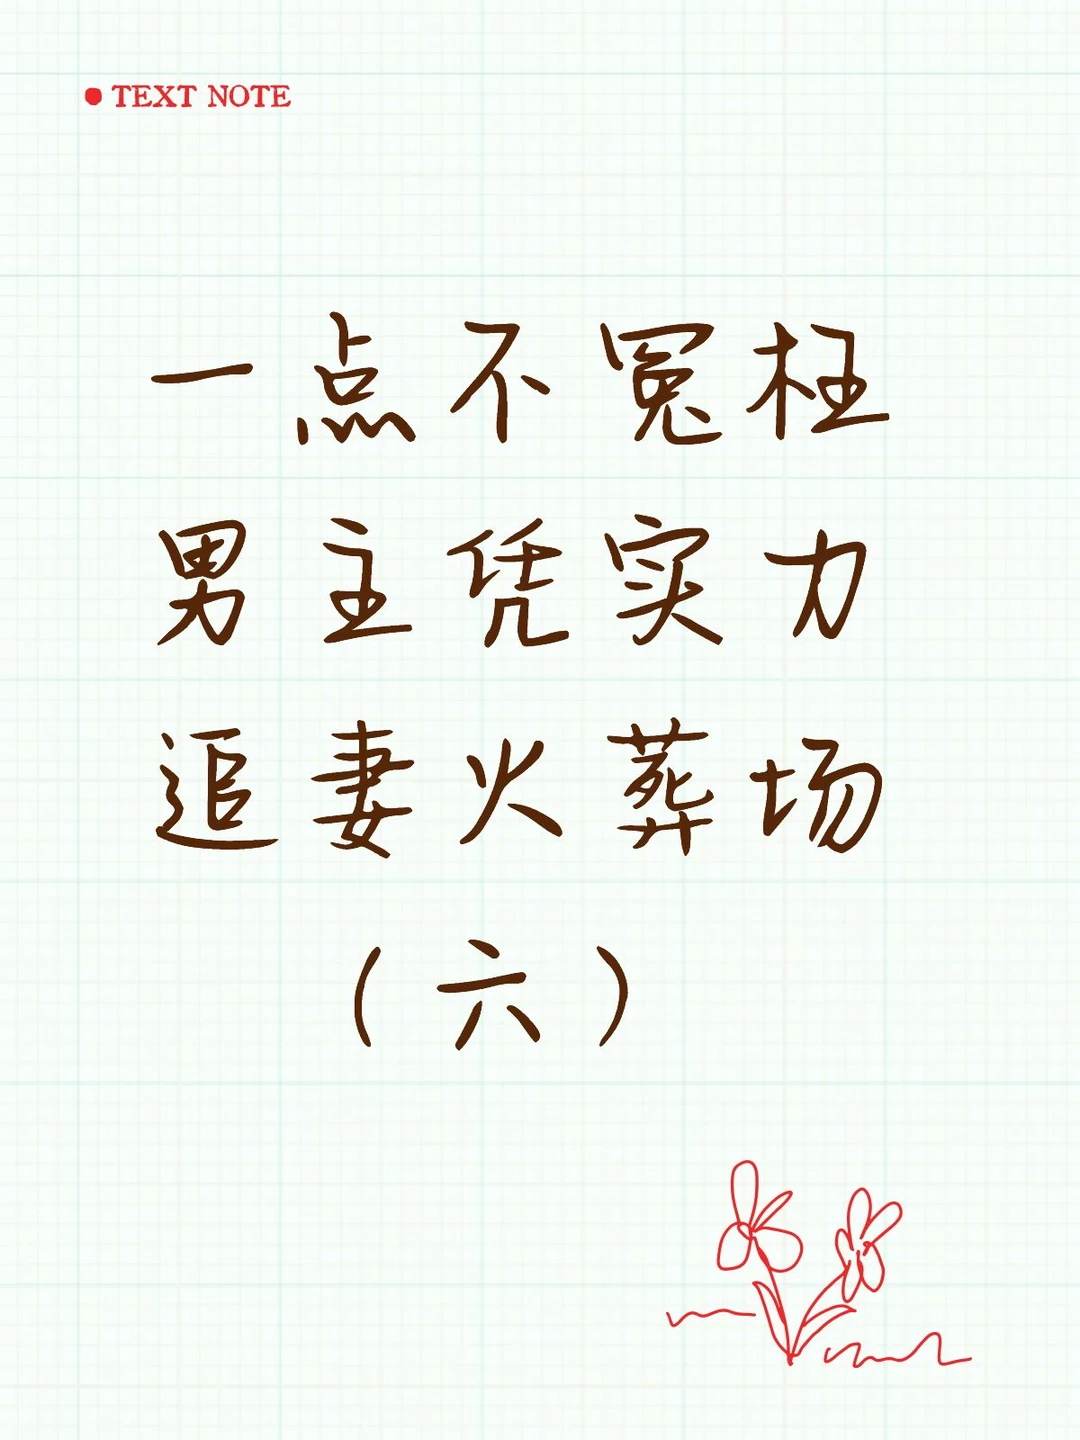 TEXT NOTE
一点不冤枉
男主凭实力
追妻火葬场
（六）